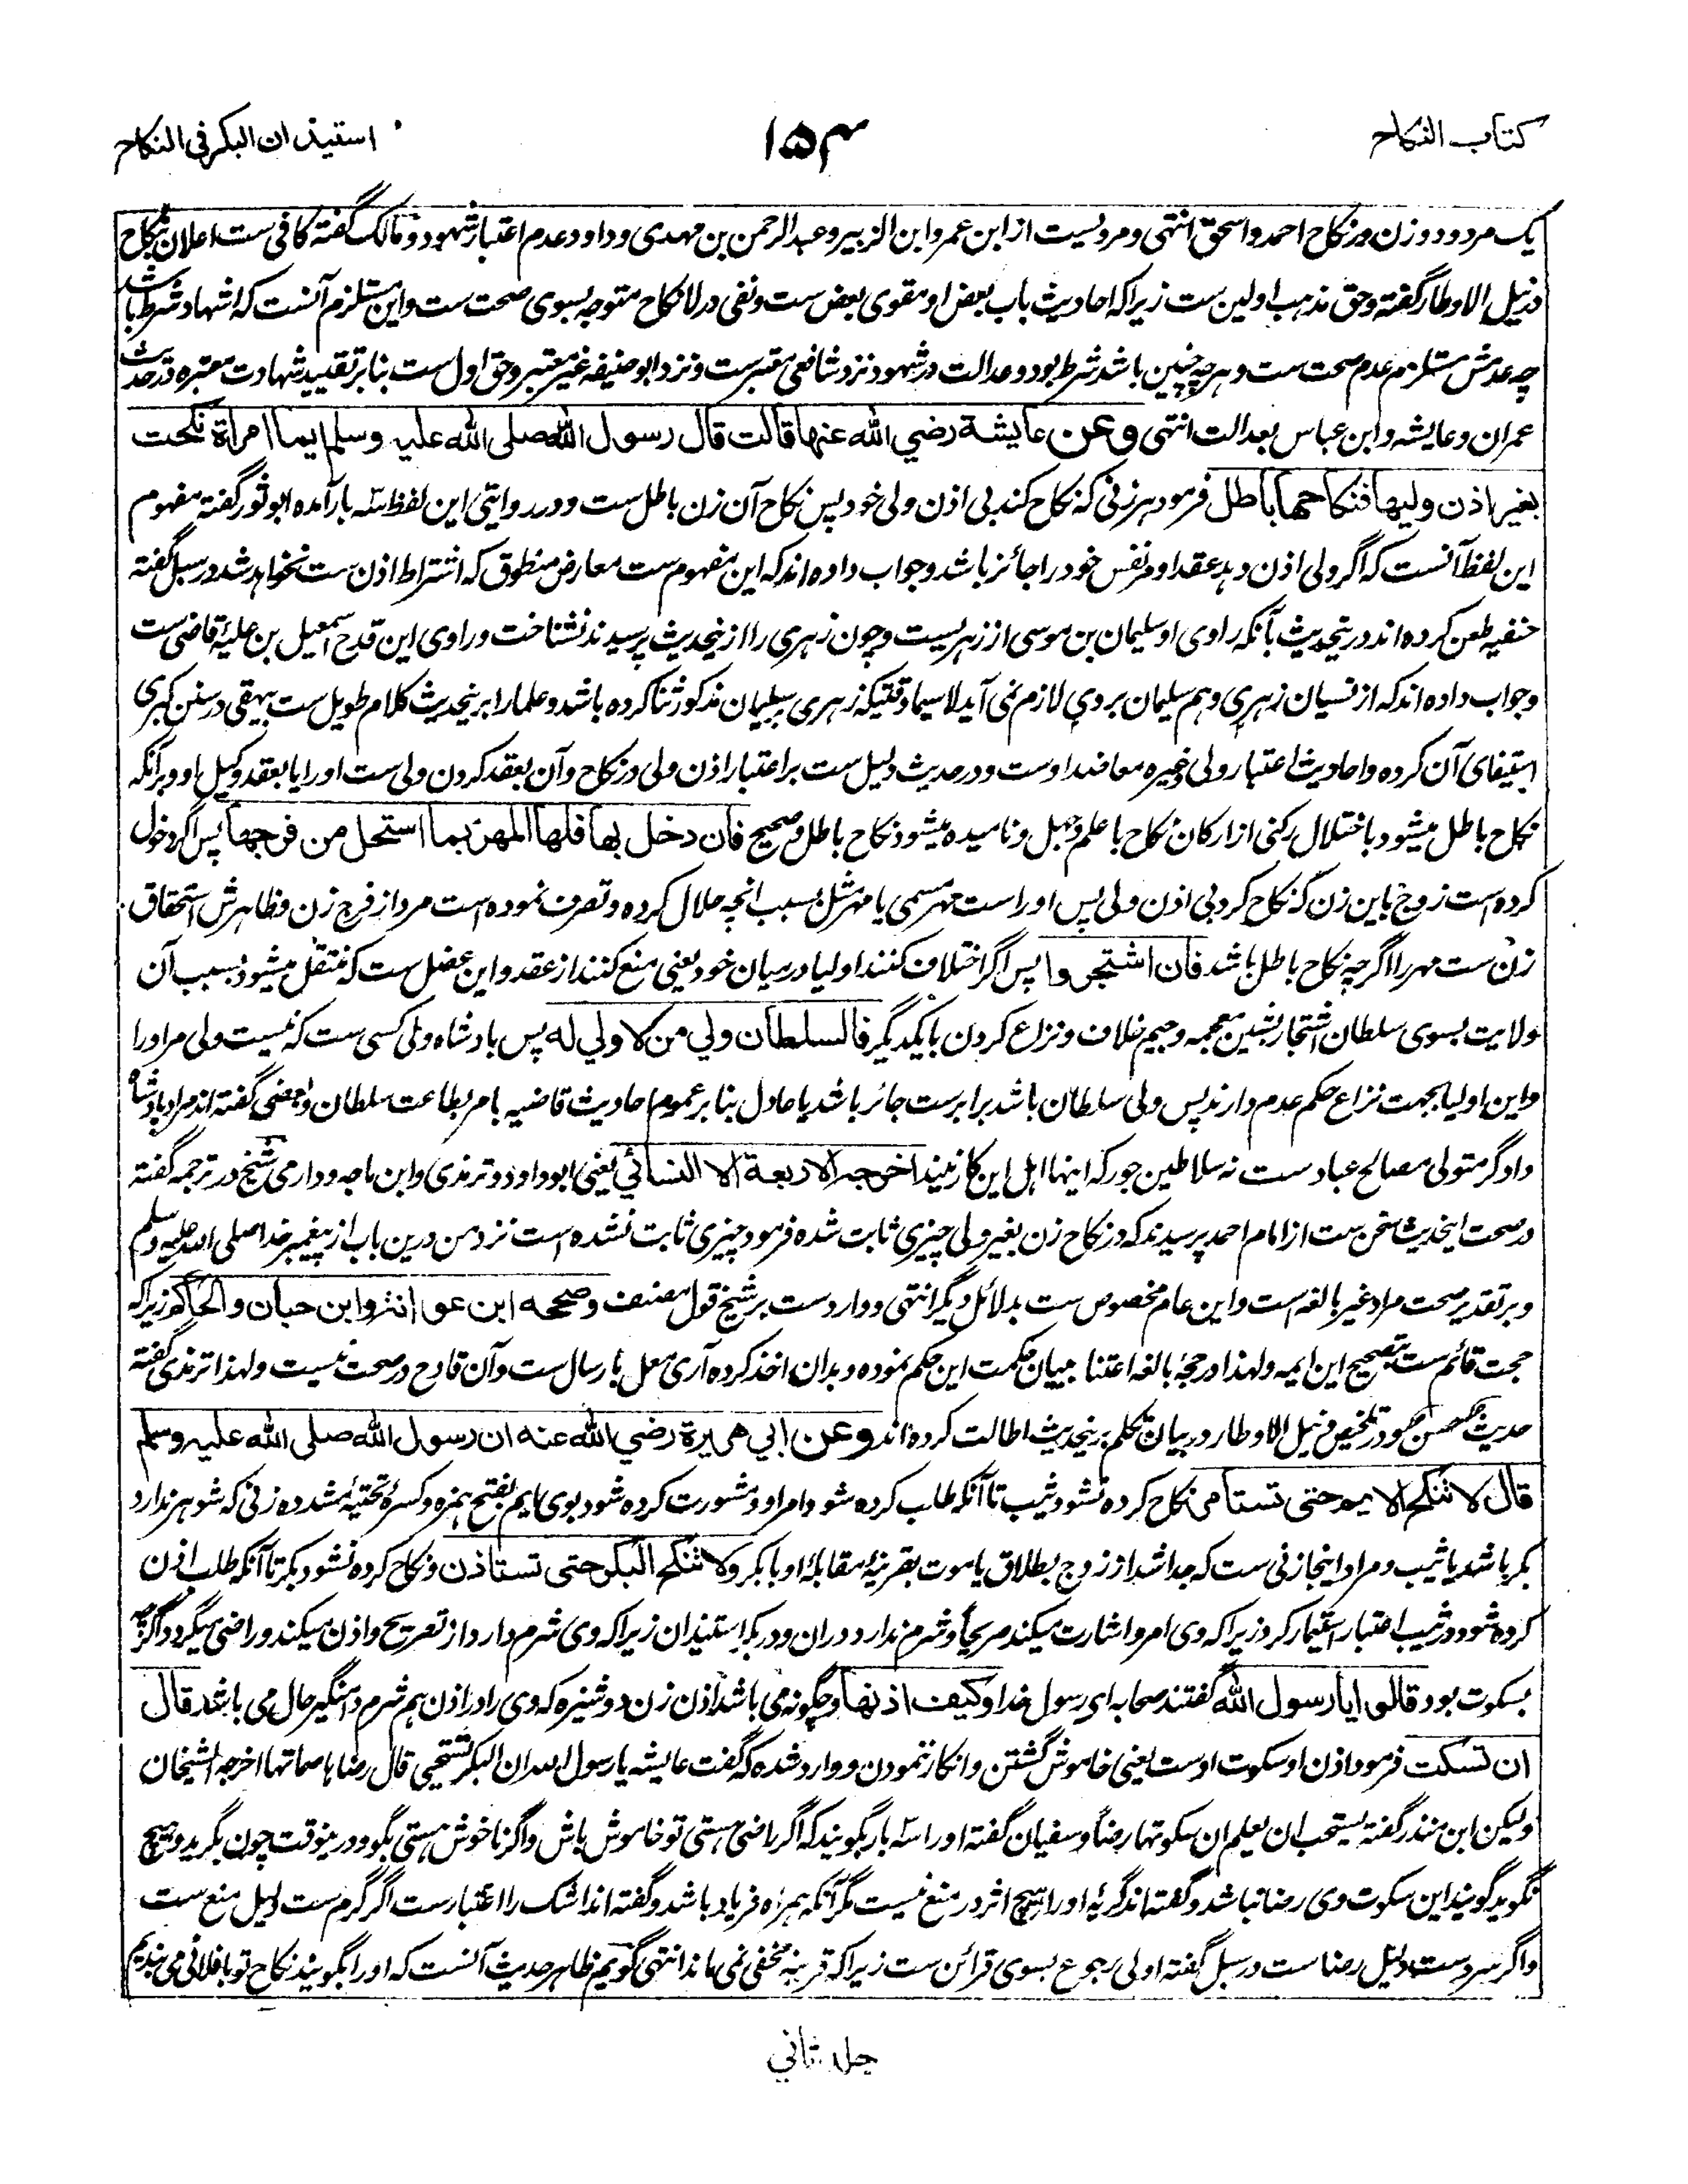 کتاب النکاح
۱۵۳
استیذان البکر فی النکاح
یک مرد و دو زن در نکاح احمد و اسحق انتهی و مرویست از ابن عمر و ابن الزبیر و عبدالرحمن بن مهدی و داود عدم اعتبار شهود و مالک گفته کافی ست اعلان نکاح
در نیل الاوطار گفته و حق مذهب اولین ست زیراکه احادیث باب بعض او مقوی بعض ست و نفی در لا نکاح متوجه بسوی صحت ست و این مستلزم آنست که اشهاد شرط باشد
چه عدمش مستلزم عدم صحت ست و هرچه چنین باشد شرط بود و عدالت در شهود نزد شافعی معتبرست و نزد ابو حنیفه غیر معتبر و حق اول ست بنابر تقیید شهادت معتبره در حدیث
عمران و عایشه و ابن عباس بعدالت انتهی وعن عایشة رضي الله عنها قالت قال رسول الله صلی الله علیه وسلم ایما امرأة نکحت
بغیر اذن ولیها فنکاحها باطل فرمود هر زنی که نکاح کند بی اذن ولی خود پس نکاح آن زن باطل ست و در روایتی این لفظ سه بار آمده ابو ثور گفته مفهوم
این لفظ آنست که اگر ولی اذن دهد عقد او مر نفس خود را جائز باشد و جواب داده اند که این مفهوم ست معارض منطوق که اشتراط اذن ست نخواهد شد در سبل گفته
حنفیه طعن کرده اند درینحدیث بآنکه راوی او سلیمان بن موسی از زهریست و چون زهری را ازینحدیث پرسیدند نشناخت و راوی این قدح اسمعیل بن علیۀ قاضی ست
وجواب داده اند که از نسیان زهری وهم سلیمان بر وی لازم نمی آید لاسیما وقتیکه زهری بر سلیمان مذکور ثنا کرده باشد و علما را برینحدیث کلام طویل ست بیهقی در سنن کبری
استیفای آن کرده و احادیث اعتبار ولی وغیره معاضد اوست و در حدیث دلیل ست بر اعتبار اذن ولی در نکاح و آن بعقد کردن ولی ست او را یا بعقد وکیل او و برآنکه
نکاح باطل میشود باختلال رکنی از ارکان نکاح با علم و جهل و نامیده میشود نکاح باطل و صحیح فان دخل بها فلها المهر بما استحل من فرجها پس اگر دخول
کرده است زوج باین زن که نکاح کرد بی اذن ولی پس او راست مهر مسمی یا مهر مثل بسبب آنچه حلال کرده و تصرف نموده است مرد از فرج زن و ظاهرش استحقاق
زن ست مهر را اگرچه نکاح باطل باشد فان اشتجروا پس اگر اختلاف کنند اولیا در میان خود یعنی منع کنند از عقد و این عضل ست که منتقل میشود بسبب آن
ولایت بسوی سلطان اشتجار بشین معجمه و جیم خلاف و نزاع کردن با یکدیگر فالسلطان ولي من لا ولي له پس بادشاه ولی کسی ست که نیست ولی مر او را
و این اولیا بجهت نزاع حکم عدم دارند پس ولی سلطان باشد برابرست جائر باشد یا عادل بنابر عموم احادیث قاضیه بامر بطاعت سلطان و بعضی گفته اند مراد بادشاه
دادگر متولی مصالح عبادست نه سلاطین جور که اینها اهل این کار نیند اخرجه الاربعة الا النسائي یعنی ابو داود و ترمذی و ابن ماجه و دارمی شیخ در ترجمه گفته
در صحت اینحدیث سخن ست از امام احمد پرسیدند که در نکاح زن بغیر ولی چیزی ثابت شده فرمود چیزی ثابت نشده است نزد من درین باب از پیغمبر خدا صلی الله علیه و سلم
و بر تقدیر صحت مراد غیر بالغه است و این عام مخصوص ست بدلائل دیگر انتهی و واردست بر شیخ قول مصنف وصححه ابن عوانة وابن حبان والحاکم زیراکه
حجت قائم ست بتصحیح این ایمه ولهذا در حجۀ بالغه اعتنا ببیان حکمت این حکم نموده و بدان اخذ کرده آری معل بارسال ست و آن قادح در صحت نیست ولهذا ترمذی گفته
حدیث حسن و در تلخیص و نیل الاوطار در بیان تکلم برینحدیث اطالت کرده اند وعن ابي هریرة رضي الله عنه ان رسول الله صلی الله علیه وسلم
قال لا تنکح الایم حتی تستأمر نکاح کرده نشود ثیب تا آنکه طلب کرده شود امر او و مشورت کرده شود بوی ایم بفتح همزه و کسرۂ تحتیۂ مشدده زنی که شوهر ندارد
بکر باشد یا ثیب و مراد اینجا زنی ست که جدا شد از زوج بطلاق یا موت بقرینۂ مقابلۂ او با بکر ولا تنکح البکر حتی تستأذن و نکاح کرده نشود بکر تا آنکه طلب اذن
کرده شود و در ثیب اختبار استیمار کرد زیراکه وی امر و اشارت میکند صریحاً و شرم ندارد دران و در بکر استیذان زیراکه وی شرم دارد از تصریح و اذن میکند و راضی میگردد اگرچه
بسکوت بود قالوا یا رسول الله گفتند صحابه ای رسول خدا وکیف اذنها و چگونه می باشد اذن زن دوشیزه که وی را در اذن هم شرم دامنگیر حال می باشد قال
ان تسکت فرمود اذن او سکوت اوست یعنی خاموش گشتن و انکار ننمودن و وارد شده که گفت عایشه یا رسول الله ان البکر تستحیي قال رضاها صماتها اخرجه الشیخان
ولیکن ابن منذر گفته یستحب ان یعلم ان سکوتها رضاً و سفیان گفته او را سه بار بگویند که اگر راضی هستی تو خاموش باش و اگر ناخوش هستی بگو و درینوقت چون بگرید و هیچ
نگوید گویند این سکوت وی رضا نباشد و گفته اند گریۂ او را هیچ اثر در منع نیست مگر آنکه همراه فریاد باشد و گفته اند اشک را اعتبارست اگر گرم ست دلیل منع ست
و اگر سردست دلیل رضاست در سبل گفته اولی رجوع بسوی قرائن ست زیراکه قرینه مخفی نمی ماند انتهی گویم ظاهر حدیث آنست که او را بگویند نکاح تو با فلانی می بندیم
جلد ثاني